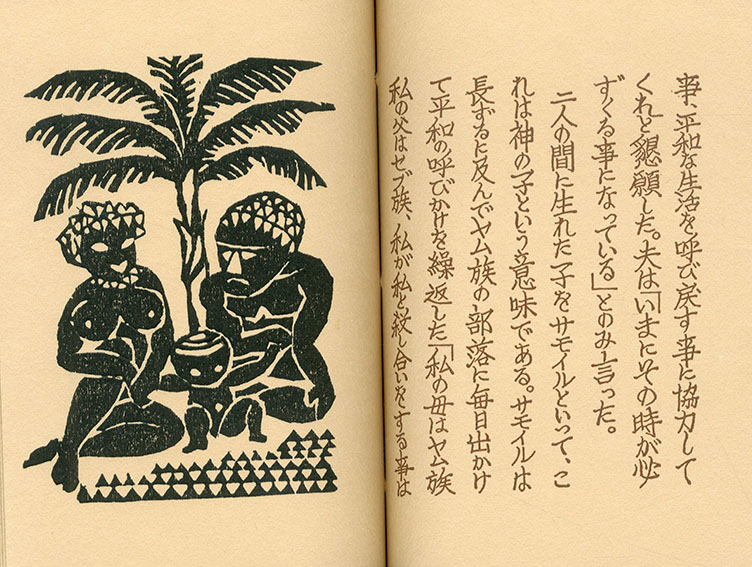 事、平和な生活を呼び戻す事に協力して
くれと懇願した。夫は「いまにその時が必
ずくる事になっている」とのみ言った。
二人の間に生れた子をサモイルといって、こ
れは神の子という意味である。サモイルは
長ずるに反んでヤム族の部落に毎日出かけ
て平和の呼びかけを繰返した「私の母はヤム族
私の父はセブ族、私が私と殺し合いをする事は